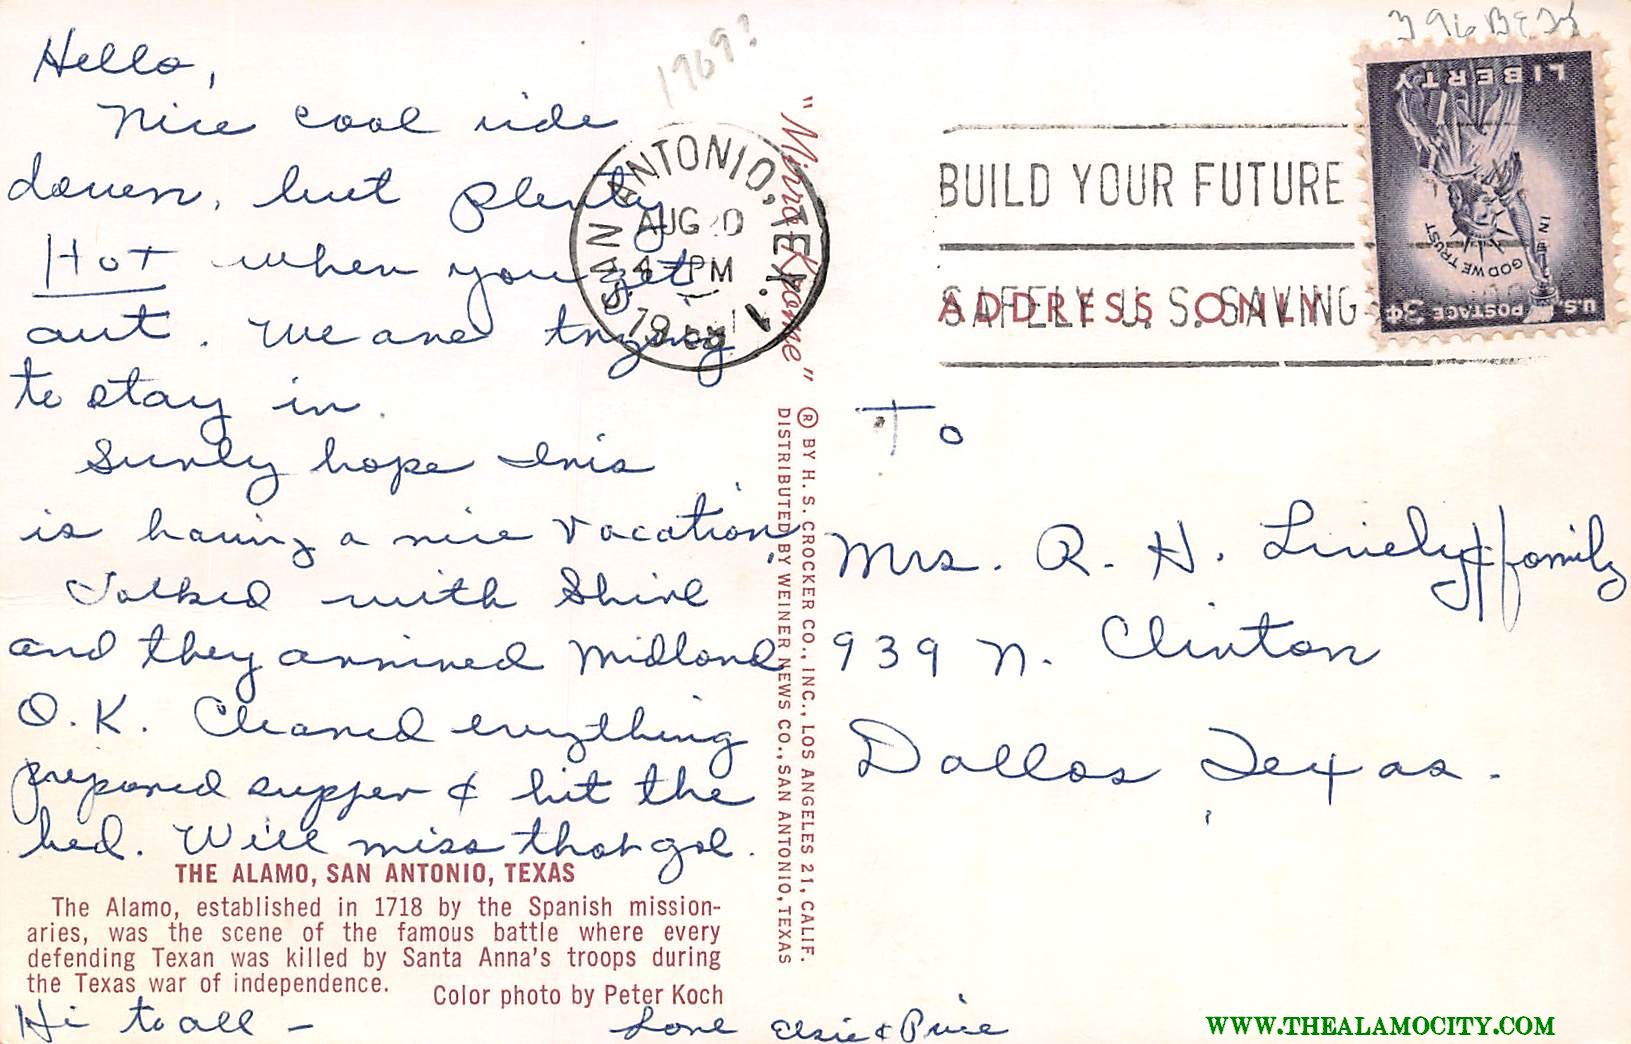 Hello,
Nice cool ride
down, but plenty
Hot when you get
out. We are trying
to stay in.
Surely hope Inis
is having a nice vacation,
Talked with Shirl
and they arrived Midland
O.K. Cleaned everything
prepared supper & hit the
bed. Will miss that gal.
THE ALAMO, SAN ANTONIO, TEXAS
The Alamo, established in 1718 by the Spanish mission-
aries, was the scene of the famous battle where every
defending Texan was killed by Santa Anna's troops during
the Texas war of independence.
Color photo by Peter Koch
Hi to all –
Love Elsie & Price
1969?
SAN ANTONIO, TEX. 1
AUG 20
4 - PM
19
"Mirro-Krome"
® BY H. S. CROCKER CO., INC., LOS ANGELES 21, CALIF.
DISTRIBUTED BY WEINER NEWS CO., SAN ANTONIO, TEXAS
BUILD YOUR FUTURE
SAFELY U. S. SAVING
ADDRESS ONLY
LIBERTY
IN GOD WE TRUST
U.S. POSTAGE 3¢
To
Mrs. R. H. Lively & family
939 N. Clinton
Dallas Texas.
WWW.THEALAMOCITY.COM